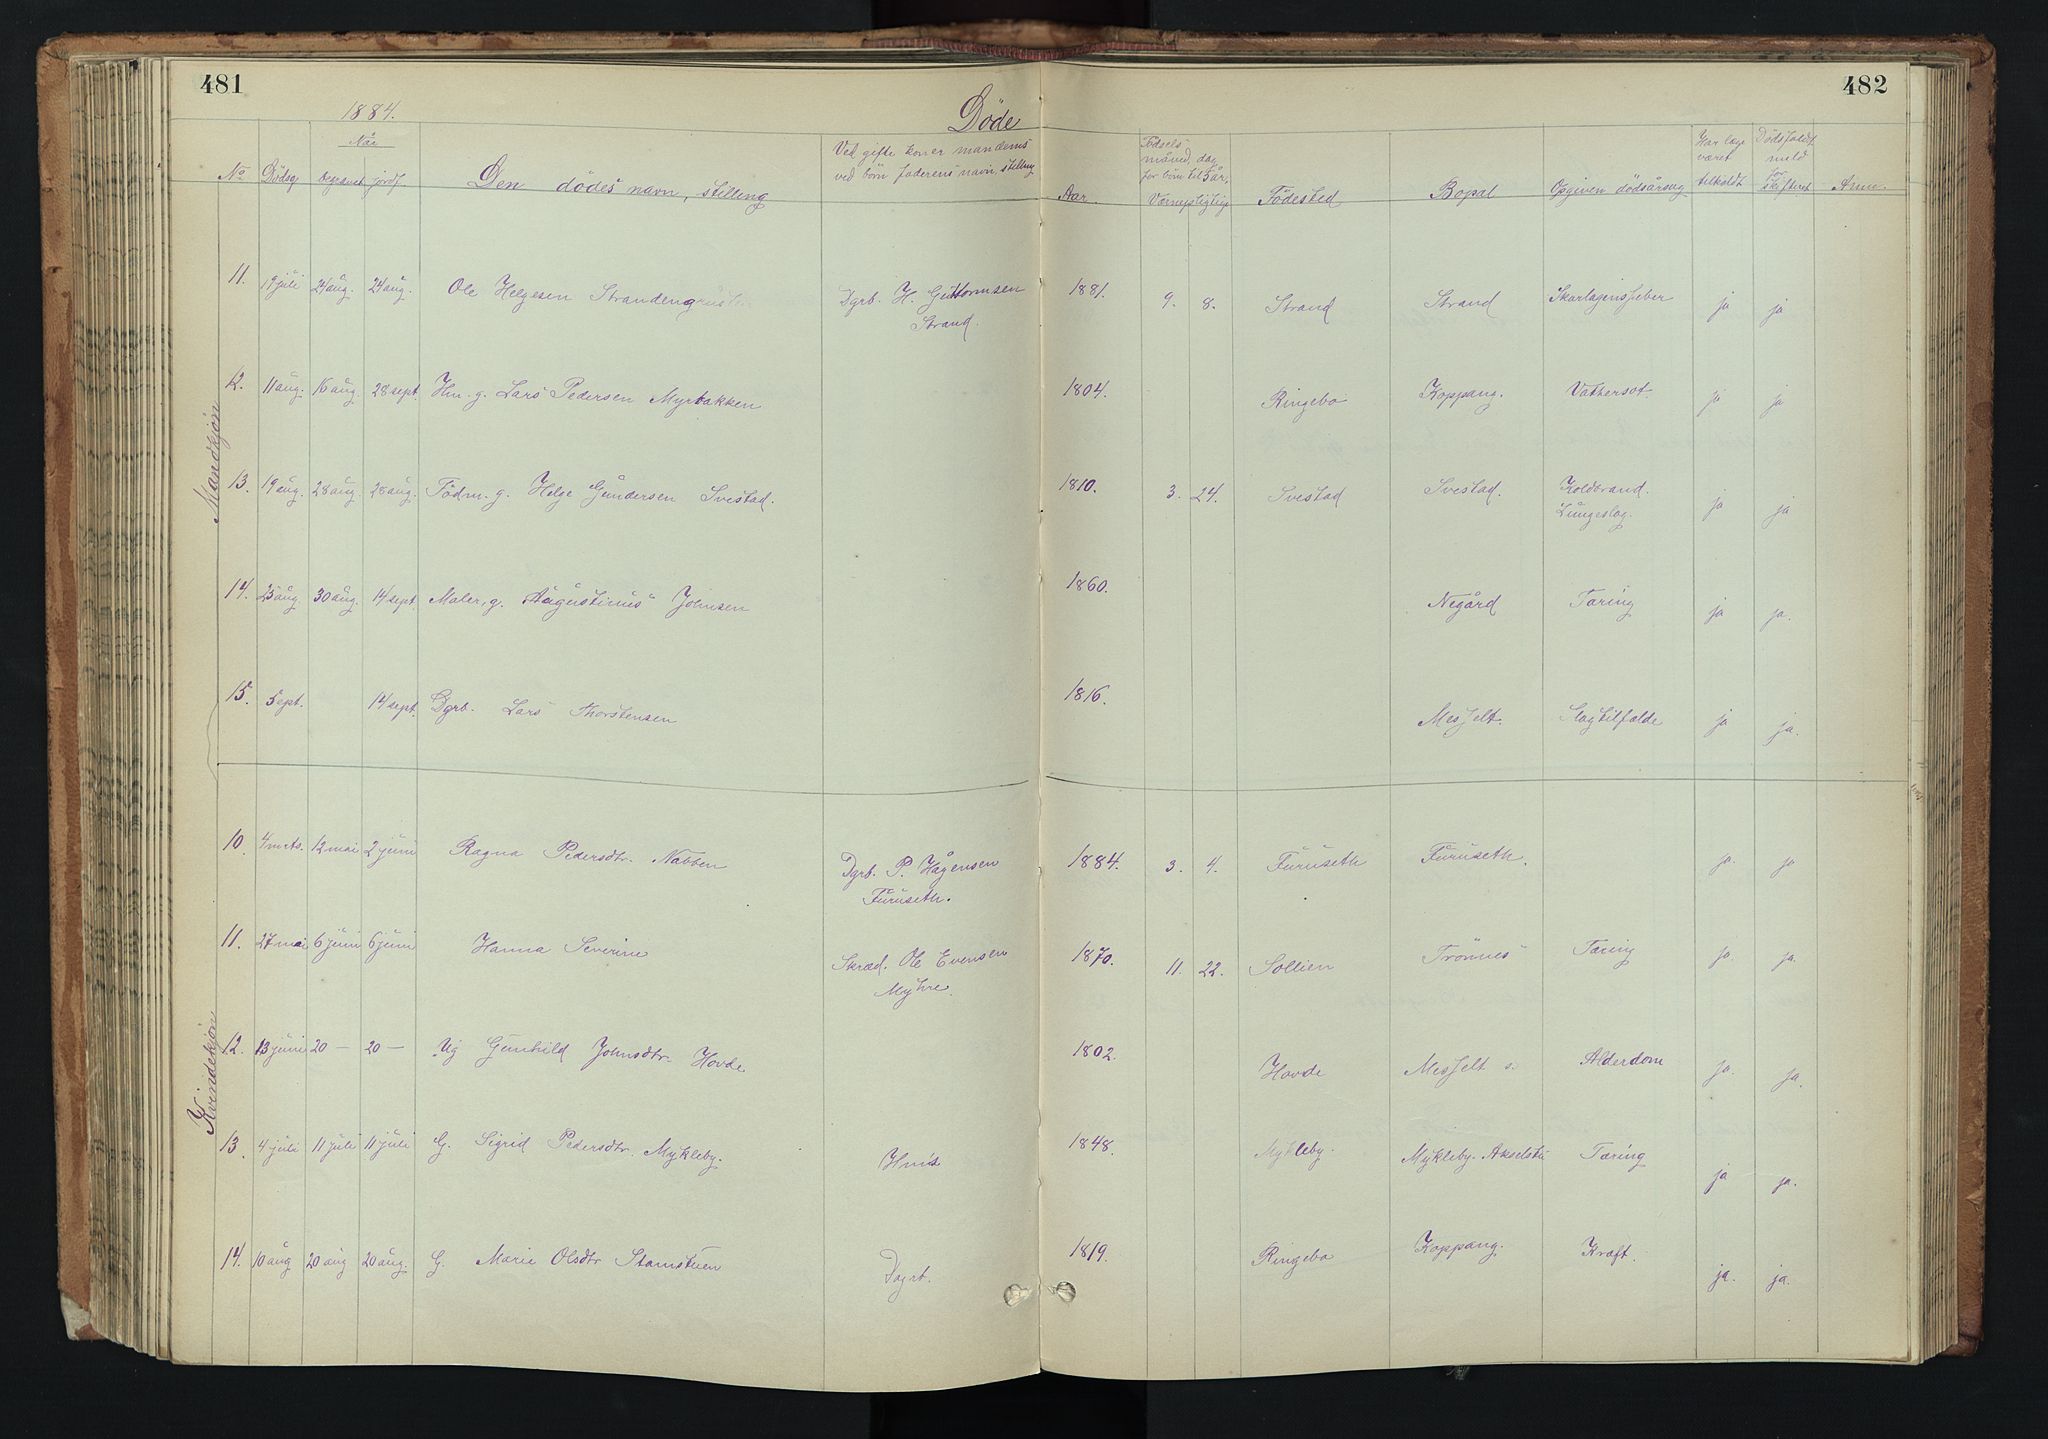 481
482
1884.
Döde
No Dødsd begravet jordf.
Når
Den dödes navn, stilling
Ved gifte koner mandens
ved börn faderens navn, stilling
Aar.
Födsels
måned, dag
for börn til 5 år,
Værnepligtige
Födested
Bopal
Opgiven dödsårsag
Har læge
været
tilkaldt
Dödsfaldt
meld
for
skifteret
Anm.
Mandkjøn
11. 19 juli 24 aug. 24 aug. Ole Helgesen Strandengrusten Dgrb. H. Guttormsen
Strand. 1881. 9. 8. Strand Strand Skarlagensfeber ja ja
12. 11 aug. 16 aug. 28 sept. Hm. g. Lars Pedersen Myrbakken 1804. Ringebo Koppang. Vattersot. ja ja
13. 19 aug. 28 aug. 28 aug. Födm. g. Helge Gundersen Svestad. 1810. 3. 24. Svestad Svestad. Koldbrand.
Lungeslag. ja ja
14. 25 aug. 30 aug. 14 sept Maler, g. Augustinus Johnsen 1860. Negård Tæring ja ja.
15. 5 sept. 14 sept. Dgrb. Lars Thorstensen 1816. Messelt. Slagtilfælde ja ja.
Kvindekjøn
10. 4 mts. 12 mai 2 juni Ragna Pedersdtr. Nabben Dgrb. P. Hågensen
Furuseth. 1884. 3. 4. Furuseth Furuseth. ja. ja
11. 27 mai 6 juni 6 juni Hanna Severine Skræd. Ole Evensen
Myhre. 1870. 11. 22. Sollien Trönnes Tæring ja. ja.
12. 13 juni 20 — 20 — Ug Gunhild Johnsdtr. Hovde 1802. Hovde Messelt s. Alderdom ja. ja.
13. 4 juli 11 juli 11 juli G. Sigrid Pedersdtr. Mykleby. Hm's 1848. Mykleby. Mykleby. Akselstu Tæring ja ja.
14. 10 aug 20 aug 20 aug. G. Marie Olsdtr Stamstuen Dgrb. 1819. Ringebo Koppang. Kræft. ja. ja.